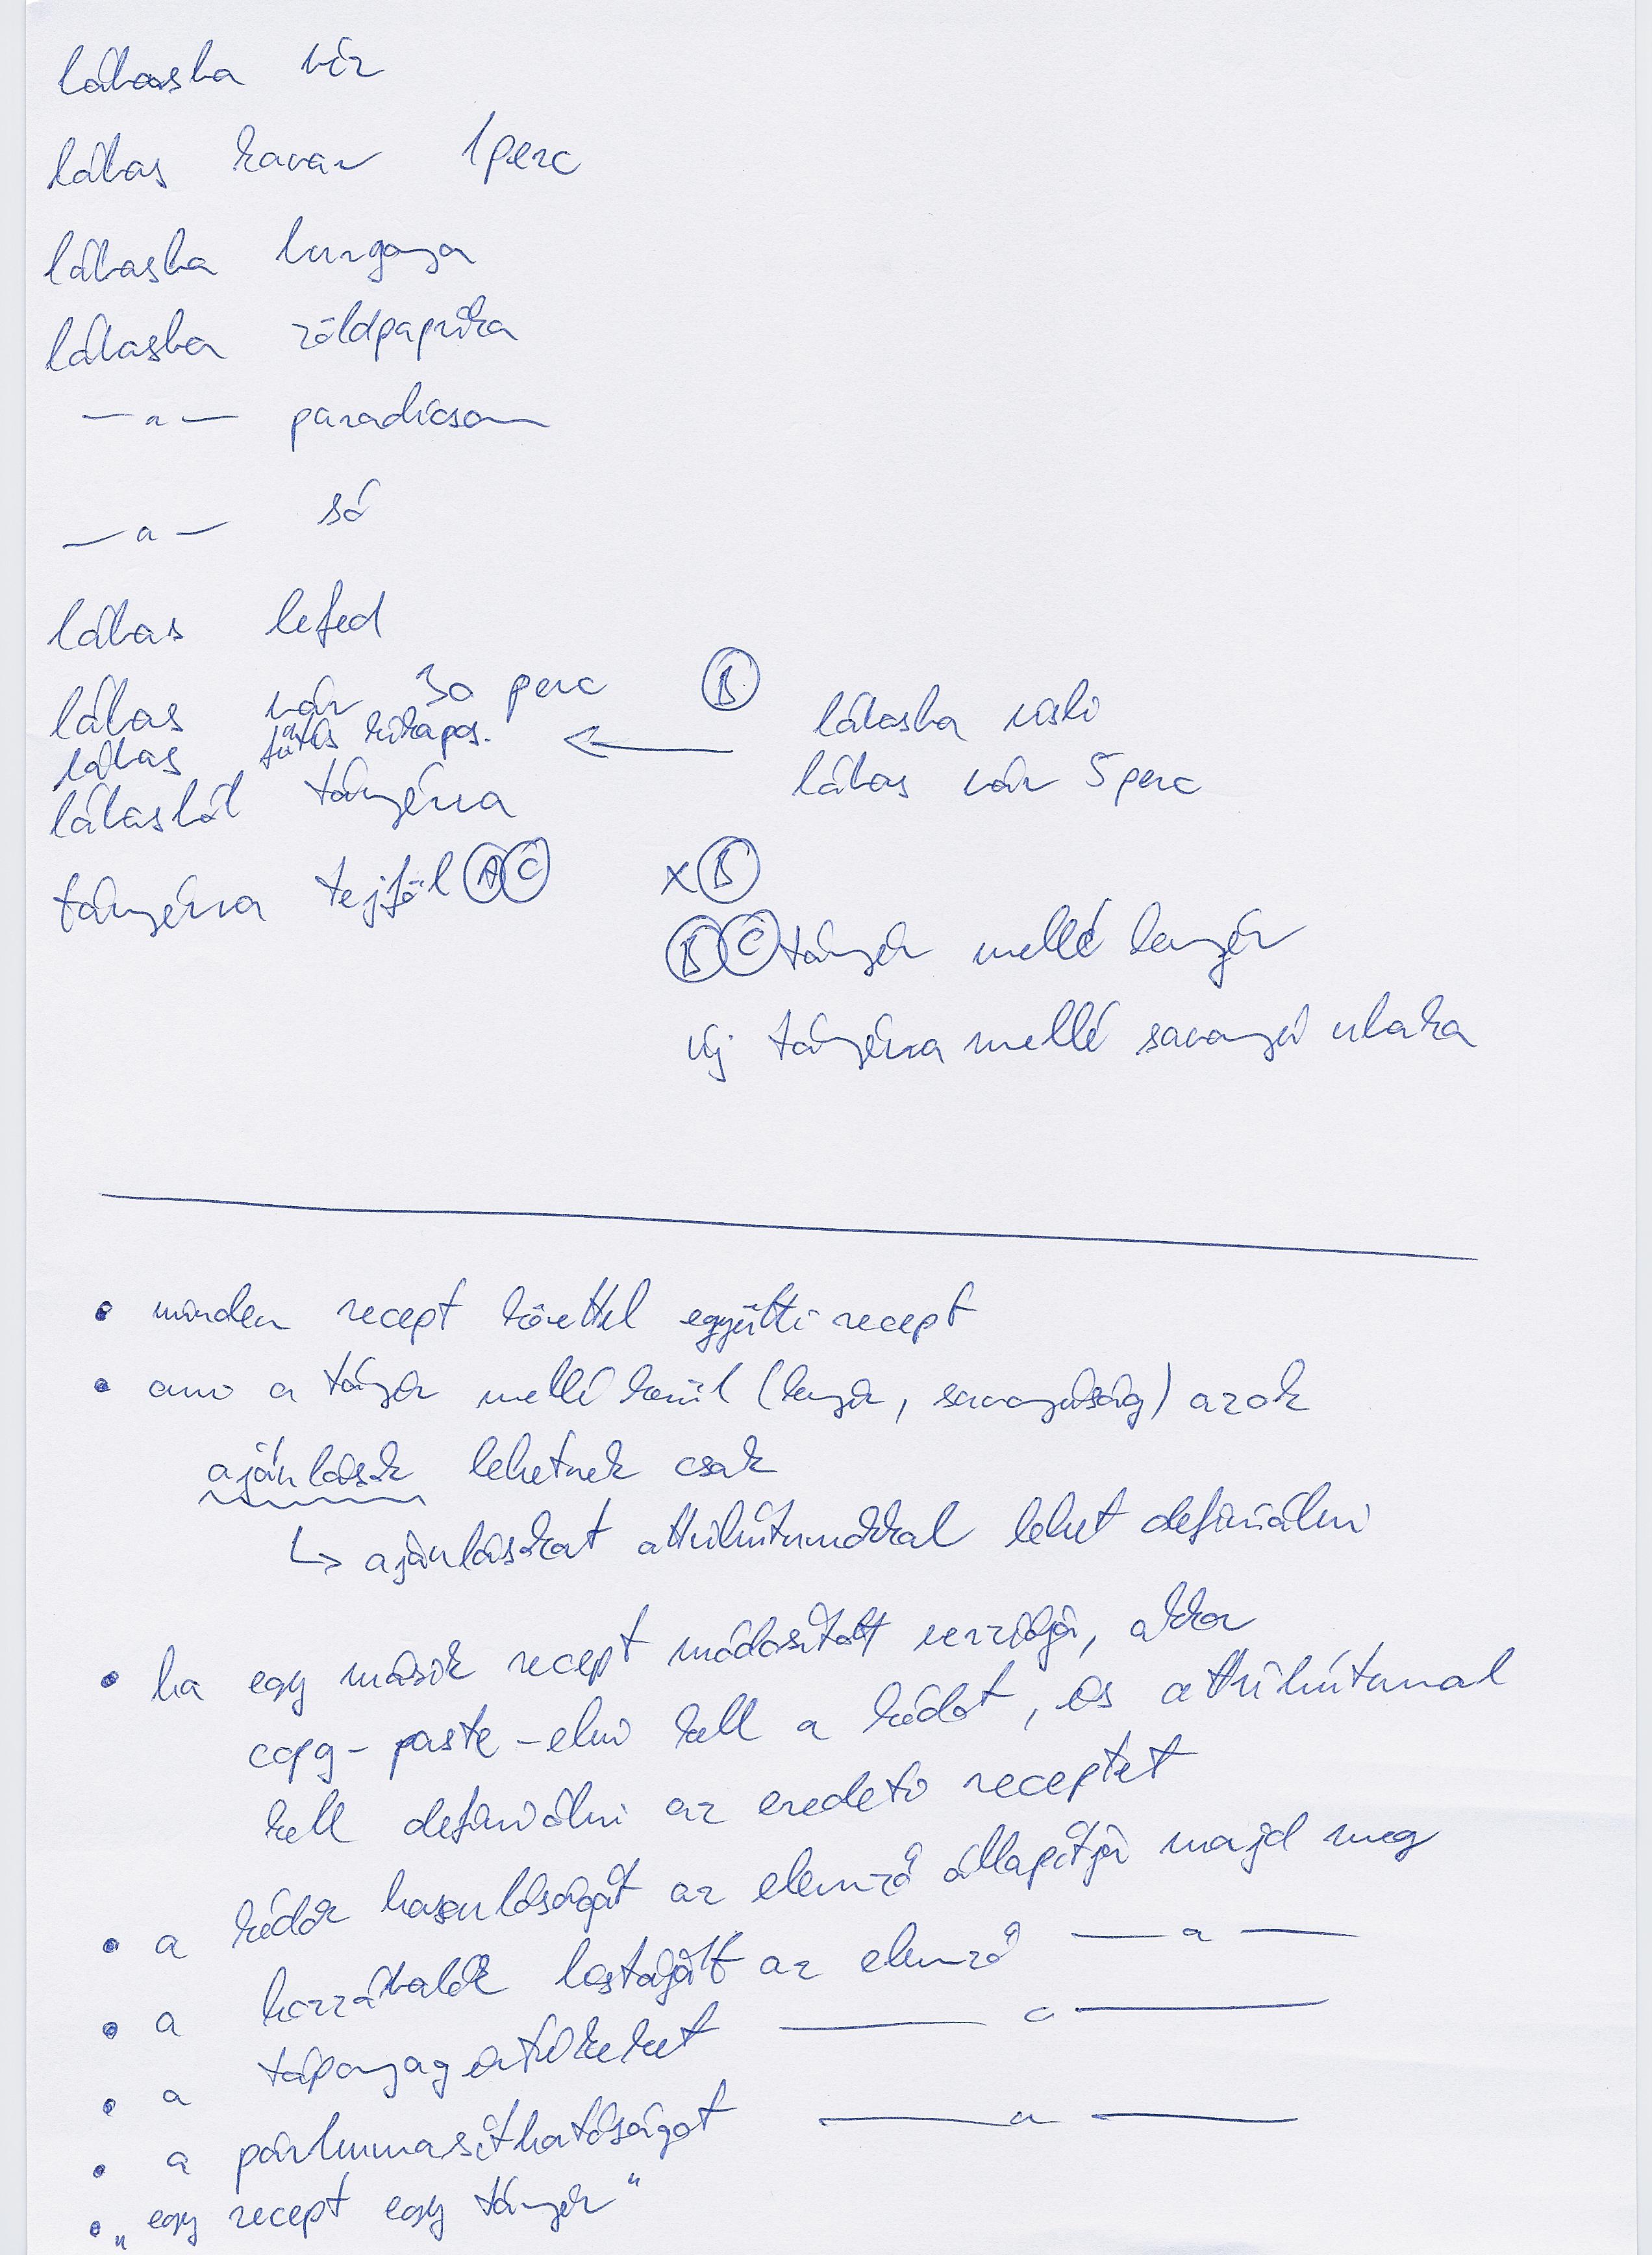 lábasba víz
lábas kavar 1 perc
lábasba burgonya
lábasba zöldpaprika
— " — paradicsom
— " — só
lábas lefed
lábas vár 30 perc Ⓑ
lábas fűtés kikapcs. ←
lábasba virsli
lábas vár 5 perc
lábasból tányérra
tányérra tejföl Ⓐ Ⓒ
x Ⓑ
Ⓑ Ⓒ tányér mellé kenyér
új tányérra mellé savanyú uborka
• minden recept körettel együtti recept
• ami a tányér mellé kerül (kenyér, savanyúság) azok
ajánlások lehetnek csak
↳ ajánlásokat attribútumokkal lehet definiálni
• ha egy másik recept módosított verziója, akkor
copy-paste-elni kell a kódot, és attribútumal
kell definiálni az eredeti receptet
• a kódok hasonlóságát az elemző állapítja majd meg
• a hozzávalók listáját az elemző — " —
• a tápanyag értékeket — " —
• a párhuzamosíthatóságot — " —
• „egy recept egy tányér"